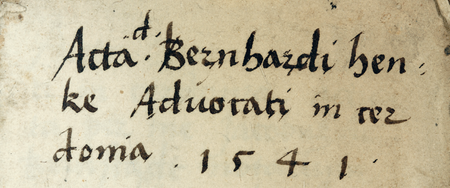 Acta d. Bernhardi hen:
ke Aduocati in cer
donia . 1 5 4 1 .